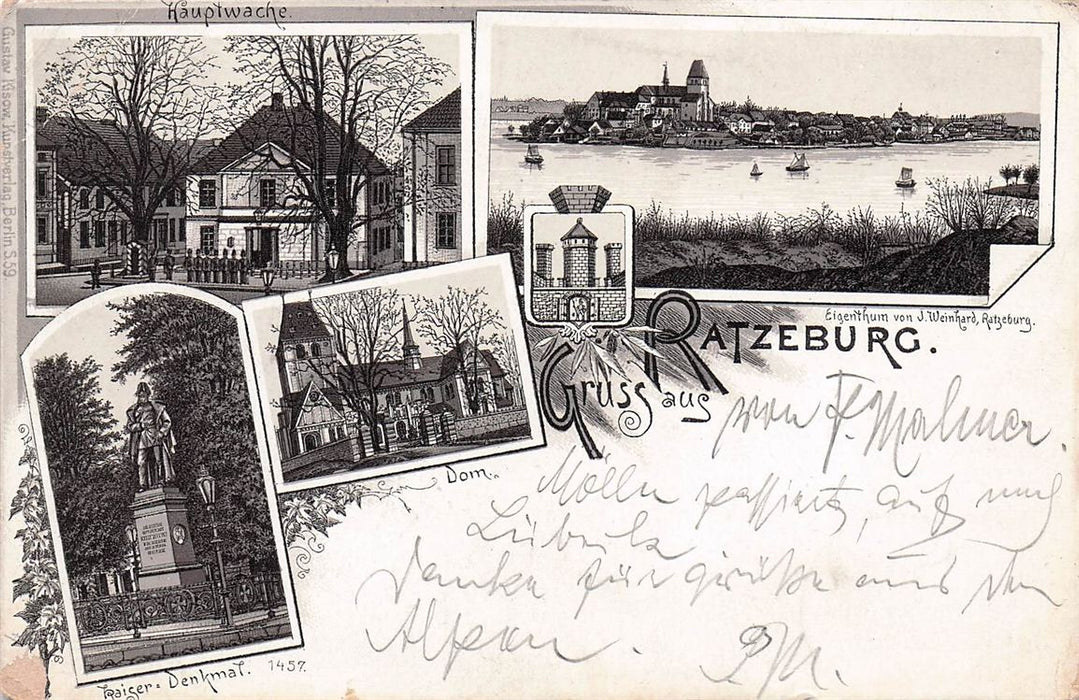 Hauptwache.
Gustav Kisow, Kunstverlag, Berlin S.59.
Eigenthum von J. Weinhard, Ratzeburg.
Gruss aus
RATZEBURG.
Dom.
Kaiser=Denkmal. 1457.
von F. Malmer.
Mölln passiert, auf nach
Lübeck
Danke für Grüße aus den
Alpen.
FM.